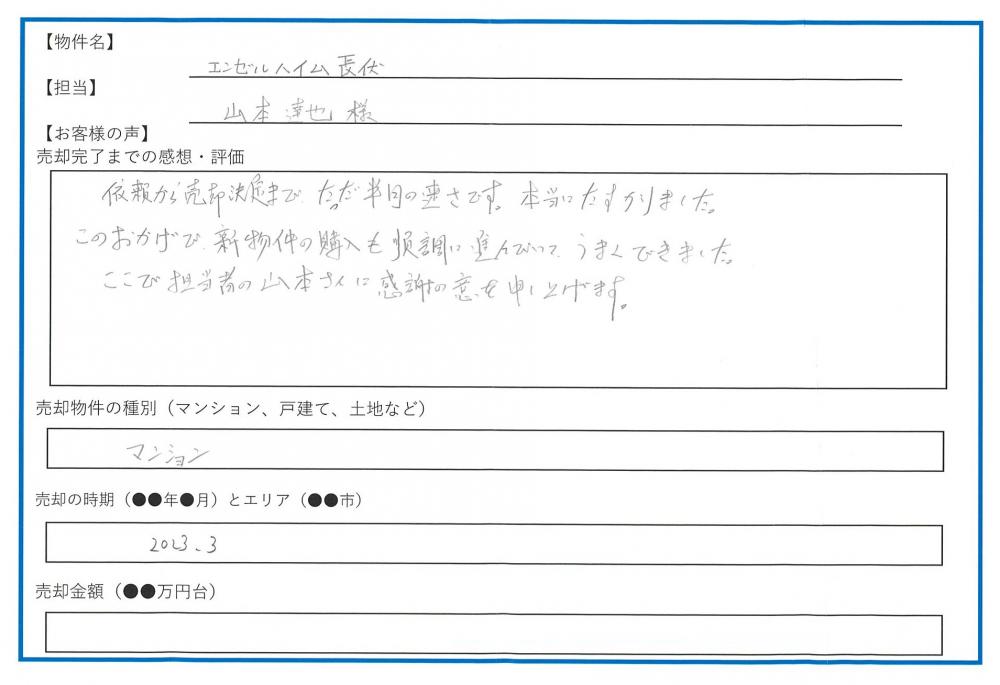 【物件名】
エンゼルハイム長伏
【担当】
山本 達也 様
【お客様の声】
売却完了までの感想・評価
依頼から売却決定まで、ただ半月の速さです。本当にたすかりました。
このおかげで、新物件の購入も順調に進んでいって、うまくできました。
ここで担当者の山本さんに感謝の意を申し上げます。
売却物件の種別（マンション、戸建て、土地など）
マンション
売却の時期（●●年●月）とエリア（●●市）
2023.3
売却金額（●●万円台）